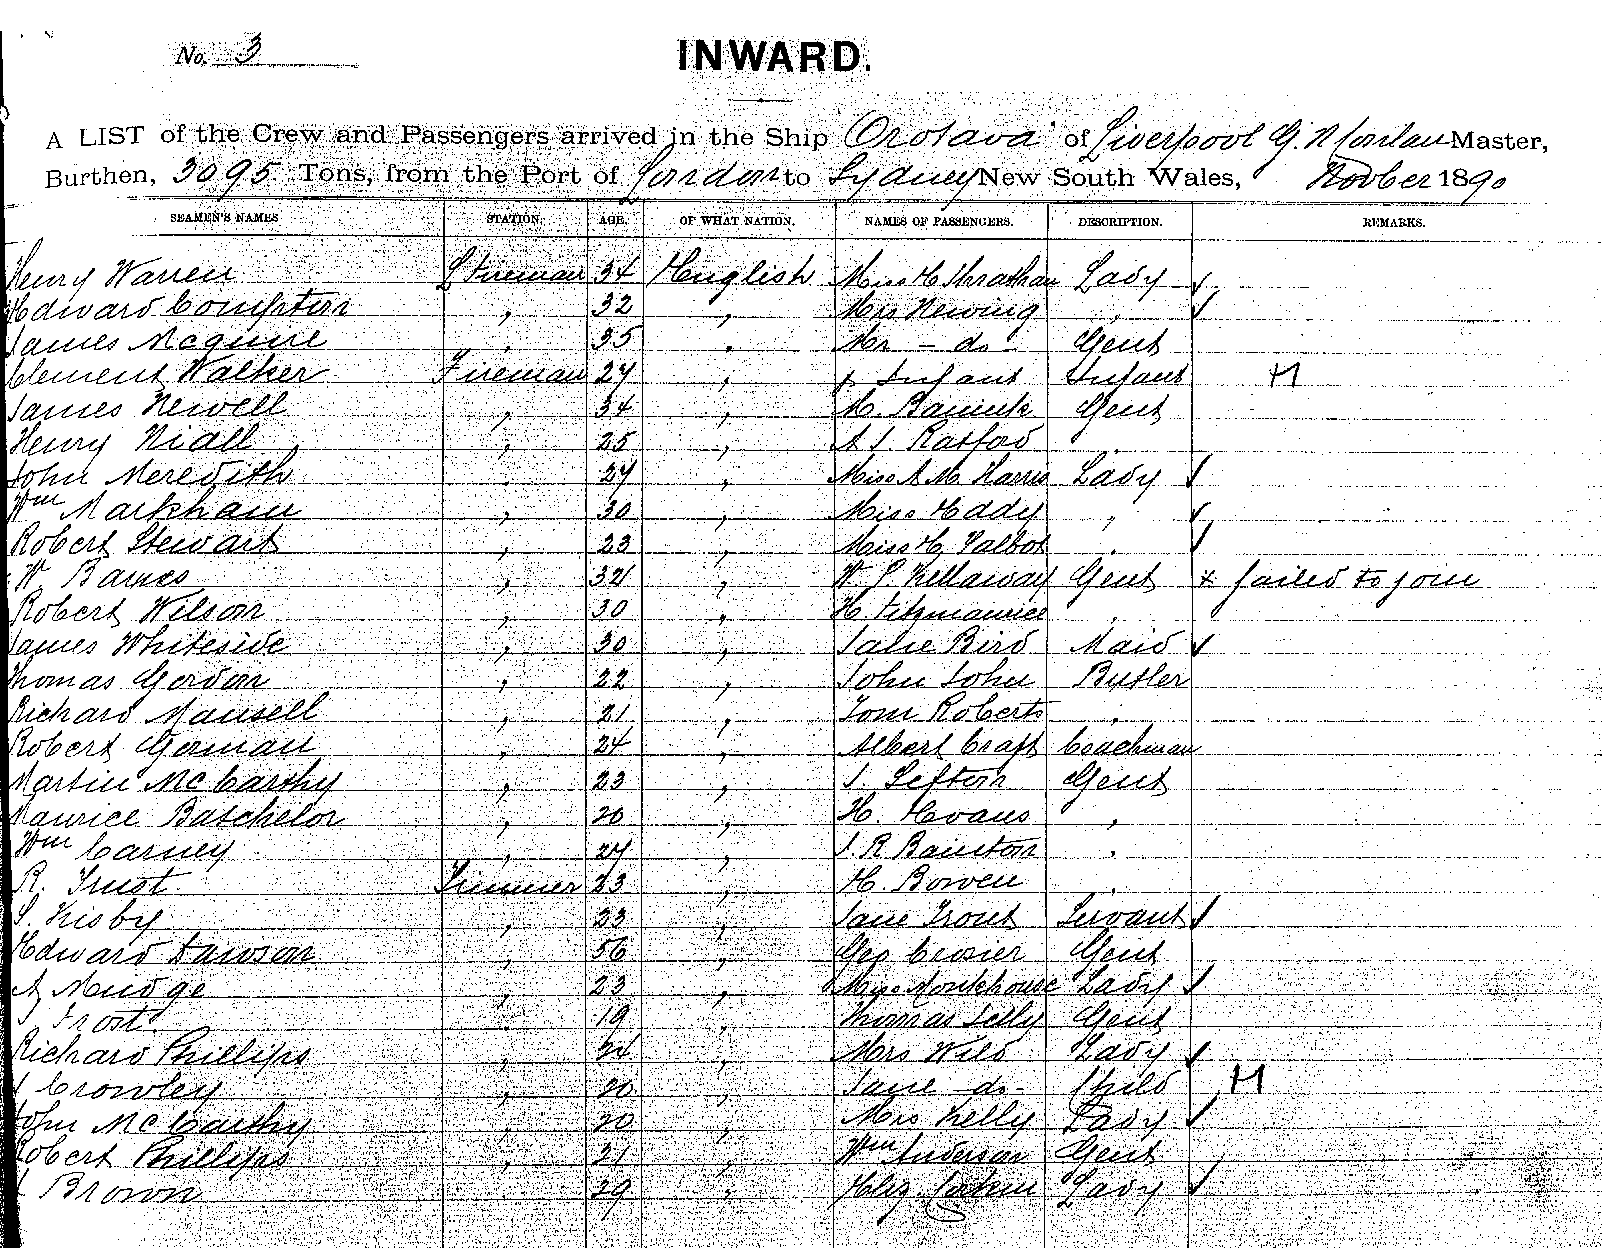 No. 3
INWARD.
A LIST of the Crew and Passengers arrived in the Ship Orotava of Liverpool G. N. Master,
Burthen, 3095 Tons, from the Port of London to Sydney New South Wales, Novber 1890
SEAMEN'S NAMES STATION. AGE. OF WHAT NATION. NAMES OF PASSENGERS. DESCRIPTION. REMARKS.
Henry Warren L Fireman 34 English Miss H Lady ✓
Edward Compton " 32 " Mrs Newing " ✓
James Mcguire " 35 " Mr - do - Gent
Clement Walker Fireman 27 " & Infant Infant H
James Newell " 34 " Gent
Henry Niall " 25 " Ratford "
John Meredith " 27 " Miss A M Harris Lady ✓
Wm Markham " 30 " Miss Eddy " ✓
Robert Stewart " 23 " Miss H Talbot " ✓
W. Baines " 32 " W P Kellaway Gent x failed to join
Robert Wilson " 30 " H. Fitzmaurice "
James Whiteside " 30 " Bird Maid ✓
Thomas Gordon " 22 " John John Butler
Richard Mansell " 21 " Tom Roberts "
Robert Gorman " 24 " Albert Craft Coachman
Martin McCarthy " 23 " J. Sefton Gent
Maurice Batchelor " 20 " H. Evans "
Wm Carney " 27 " J. R Bainton "
R. Trust Trimmer 23 " H. Bowen "
Kisby " 23 " Jane Trout Servant ✓
Edward Dawson " 56 " Geo Crosier Gent
A Mudge " 23 " Miss Monkhouse Lady ✓
Frost " 19 " Thomas Selly Gent
Richard Phillips " 24 " Mrs Wild Lady ✓
J Crowley " 20 " Jane - do - Child H
John McCarthy " 20 " Mrs Kelly Lady ✓
Robert Phillips " 21 " Wm Anderson Gent
Brown " 29 " Eliz Lady ✓